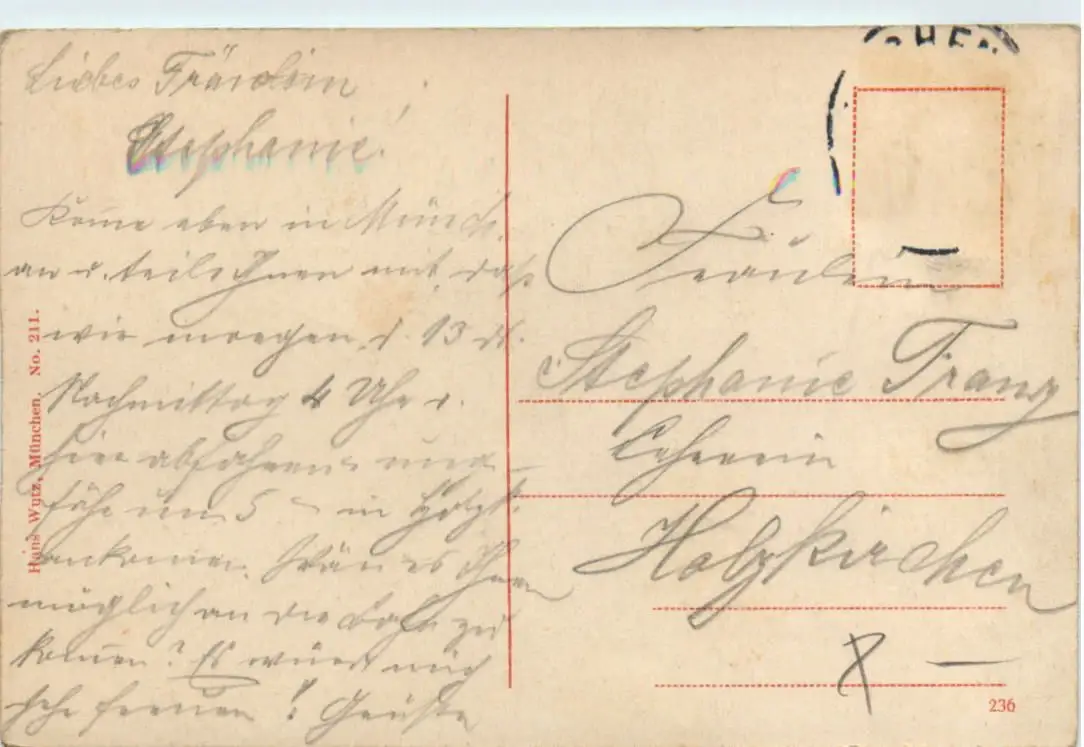 Liebes Fräulein
Stephanie!
Komme eben in Münch.
an u. teile Ihnen mit, daß
wir morgen d. 13. ds.
Nachmittag 4 Uhr v.
hier abfahren u. unge-
fähr um 5 – in Holzk.
ankommen. Wär es Ihnen
möglich an die Bahn zu
kommen? Es würde mich
sehr freuen! Grüße
Hans Wutz, München. No. 211.
CHEN
Fräulein
Stephanie Franz
Lehrerin
Holzkirchen
236